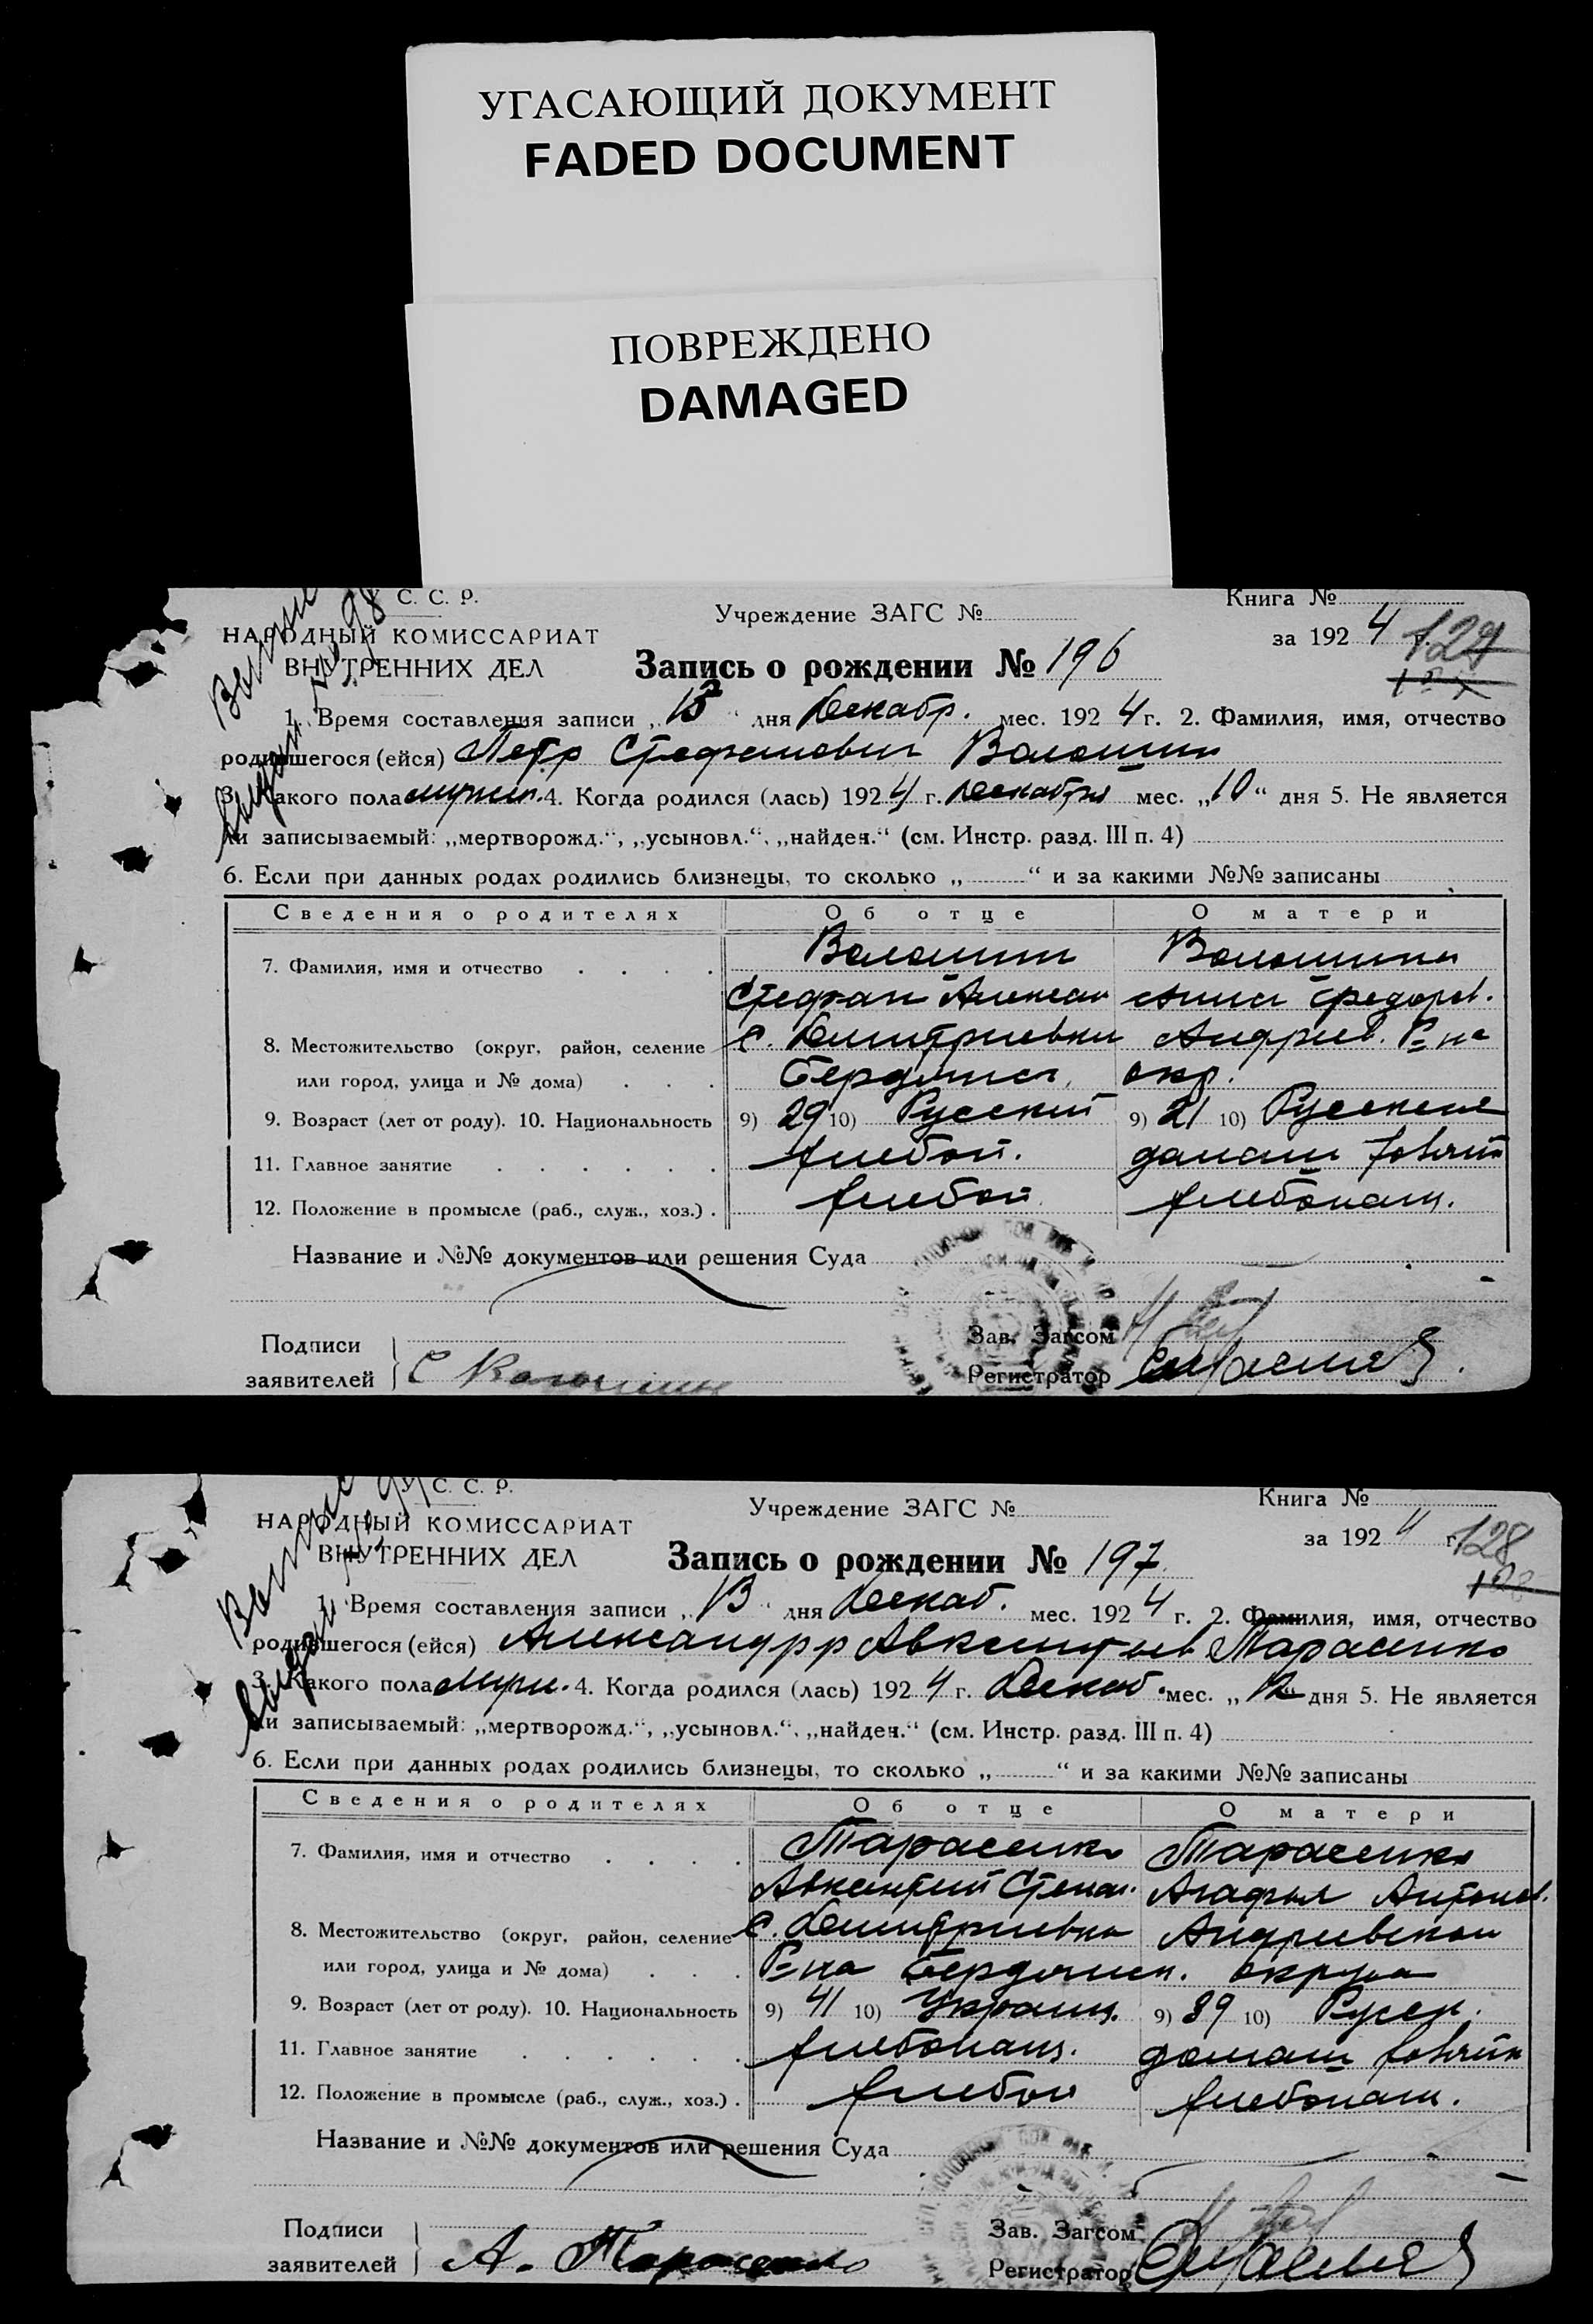 УГАСАЮЩИЙ ДОКУМЕНТ
FADED DOCUMENT
ПОВРЕЖДЕНО
DAMAGED
С. С. Р.
Учреждение ЗАГС №
Книга №
НАРОДНЫЙ КОМИССАРИАТ
за 1924 129
ВНУТРЕННИХ ДЕЛ
Запись о рождении № 196
1. Время составления записи „13" дня Декабр. мес. 1924 г. 2. Фамилия, имя, отчество
родившегося (ейся) Петр Стефанович Волошин
3. Какого пола мужск. 4. Когда родился (лась) 1924 г. Декабря мес. „10" дня 5. Не является
ли записываемый: „мертворожд.", „усыновл.", „найден." (см. Инстр. разд. III п. 4)
6. Если при данных родах родились близнецы, то сколько „ " и за какими №№ записаны
Сведения о родителях Об отце О матери
7. Фамилия, имя и отчество Волошин Волошина
Стефан Алексан Анна Федоров.
8. Местожительство (округ, район, селение с. Дмитриевки Андриев. Р-на
или город, улица и № дома) Бердянск. окр.
9. Возраст (лет от роду). 10. Национальность 9) 29 10) Русский 9) 21 10) Русская
11. Главное занятие хлебоп. домаш хозяйк
12. Положение в промысле (раб., служ., хоз.) хлебоп хлебопаш.
Название и №№ документов или решения Суда
Подписи
Зав. Загсом
заявителей С Волошин
Регистратор
У С. С. Р.
Учреждение ЗАГС №
Книга №
НАРОДНЫЙ КОМИССАРИАТ
за 1924 г. 128
ВНУТРЕННИХ ДЕЛ
Запись о рождении № 197
1. Время составления записи „13" дня Декаб. мес. 1924 г. 2. Фамилия, имя, отчество
родившегося (ейся) Александр Авксентьев Тарасенко
3. Какого пола Мужс. 4. Когда родился (лась) 1924 г. Декаб. мес. „12" дня 5. Не является
ли записываемый: „мертворожд.", „усыновл.", „найден." (см. Инстр. разд. III п. 4)
6. Если при данных родах родились близнецы, то сколько „ " и за какими №№ записаны
Сведения о родителях Об отце О матери
7. Фамилия, имя и отчество Тарасенко Тарасенко
Авксентий Степан. Агафья Антонов.
8. Местожительство (округ, район, селение с. Дмитриевка Андриевской
или город, улица и № дома) Р-на Бердянск. округа
9. Возраст (лет от роду). 10. Национальность 9) 41 10) Украин. 9) 39 10) Русск.
11. Главное занятие хлебопаш. домаш хозяйк
12. Положение в промысле (раб., служ., хоз.) хлебоп хлебопаш.
Название и №№ документов или решения Суда
Подписи
Зав. Загсом
заявителей А. Тарасенко
Регистратор